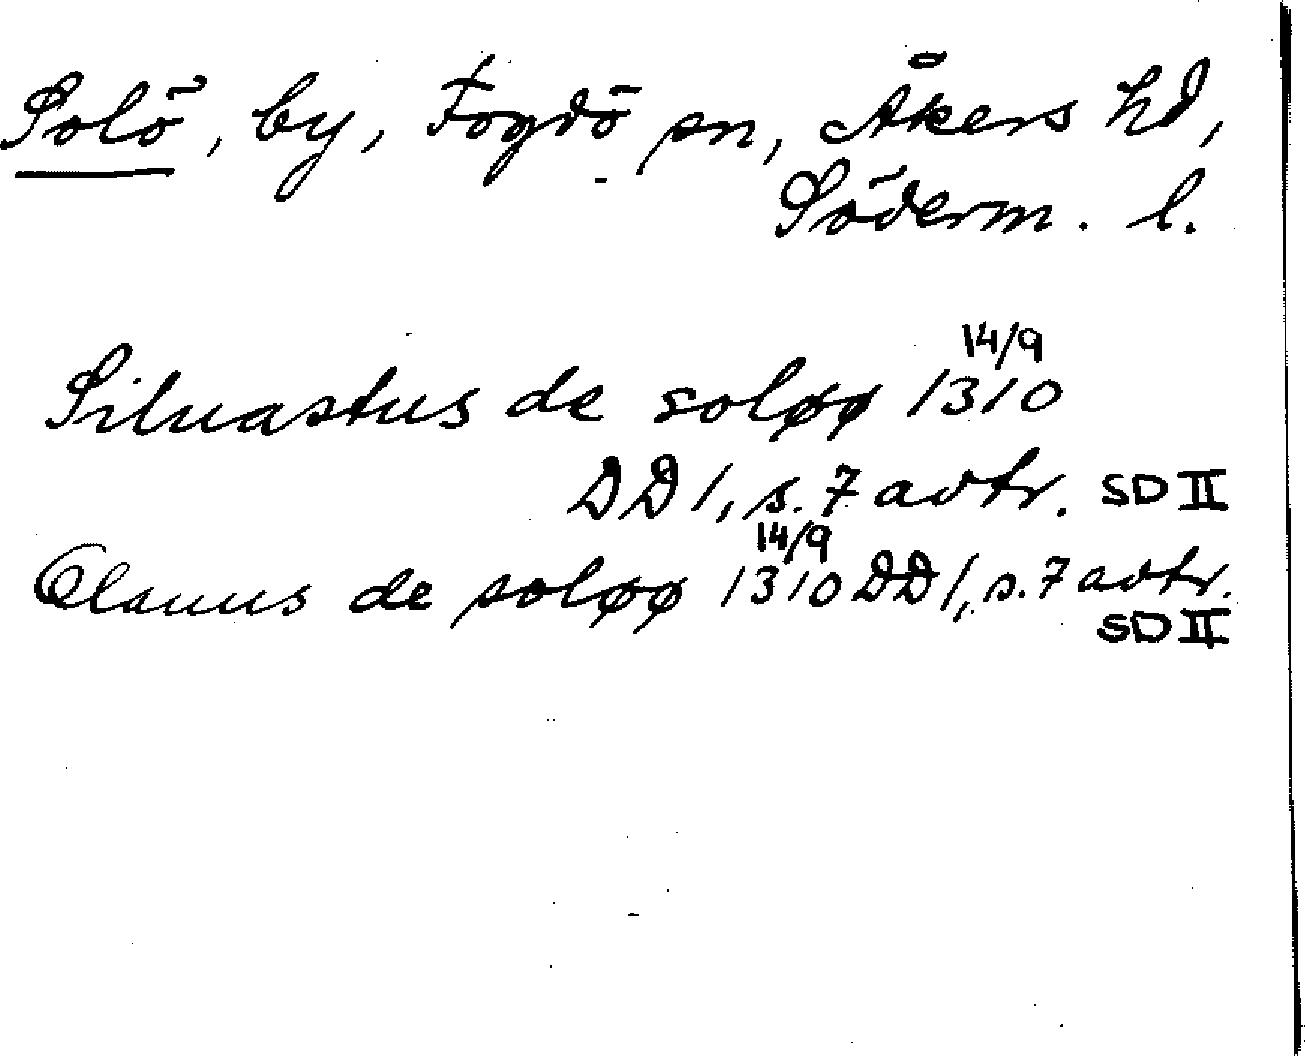 Solö, by, Fogdö sn, Åkers hd,
Söderm. l.
14/9
Siluastus de soløø 1310
DD 1, s. 7 avtr. SD II
14/9
Olauus de soløø 1310 DD 1, s. 7 avtr.
SD II